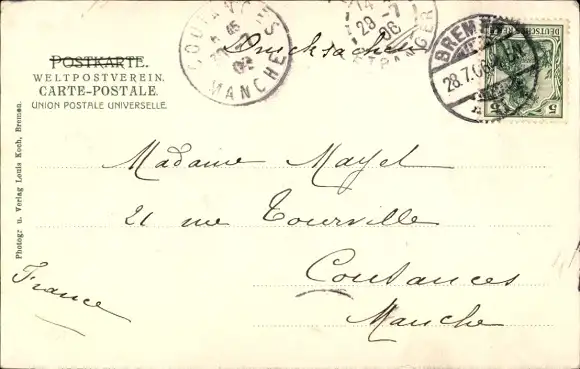 POSTKARTE.
WELTPOSTVEREIN.
CARTE-POSTALE.
UNION POSTALE UNIVERSELLE.
Drucksachen
COUTANCES
MANCHE
28 -7
06
ETRANGER
BREMEN
28.7.06
DEUTSCHES REICH
5
5
Madame
21 rue Tourville
Coutances
Manche
France
Photogr. u. Verlag Louis Koch, Bremen.